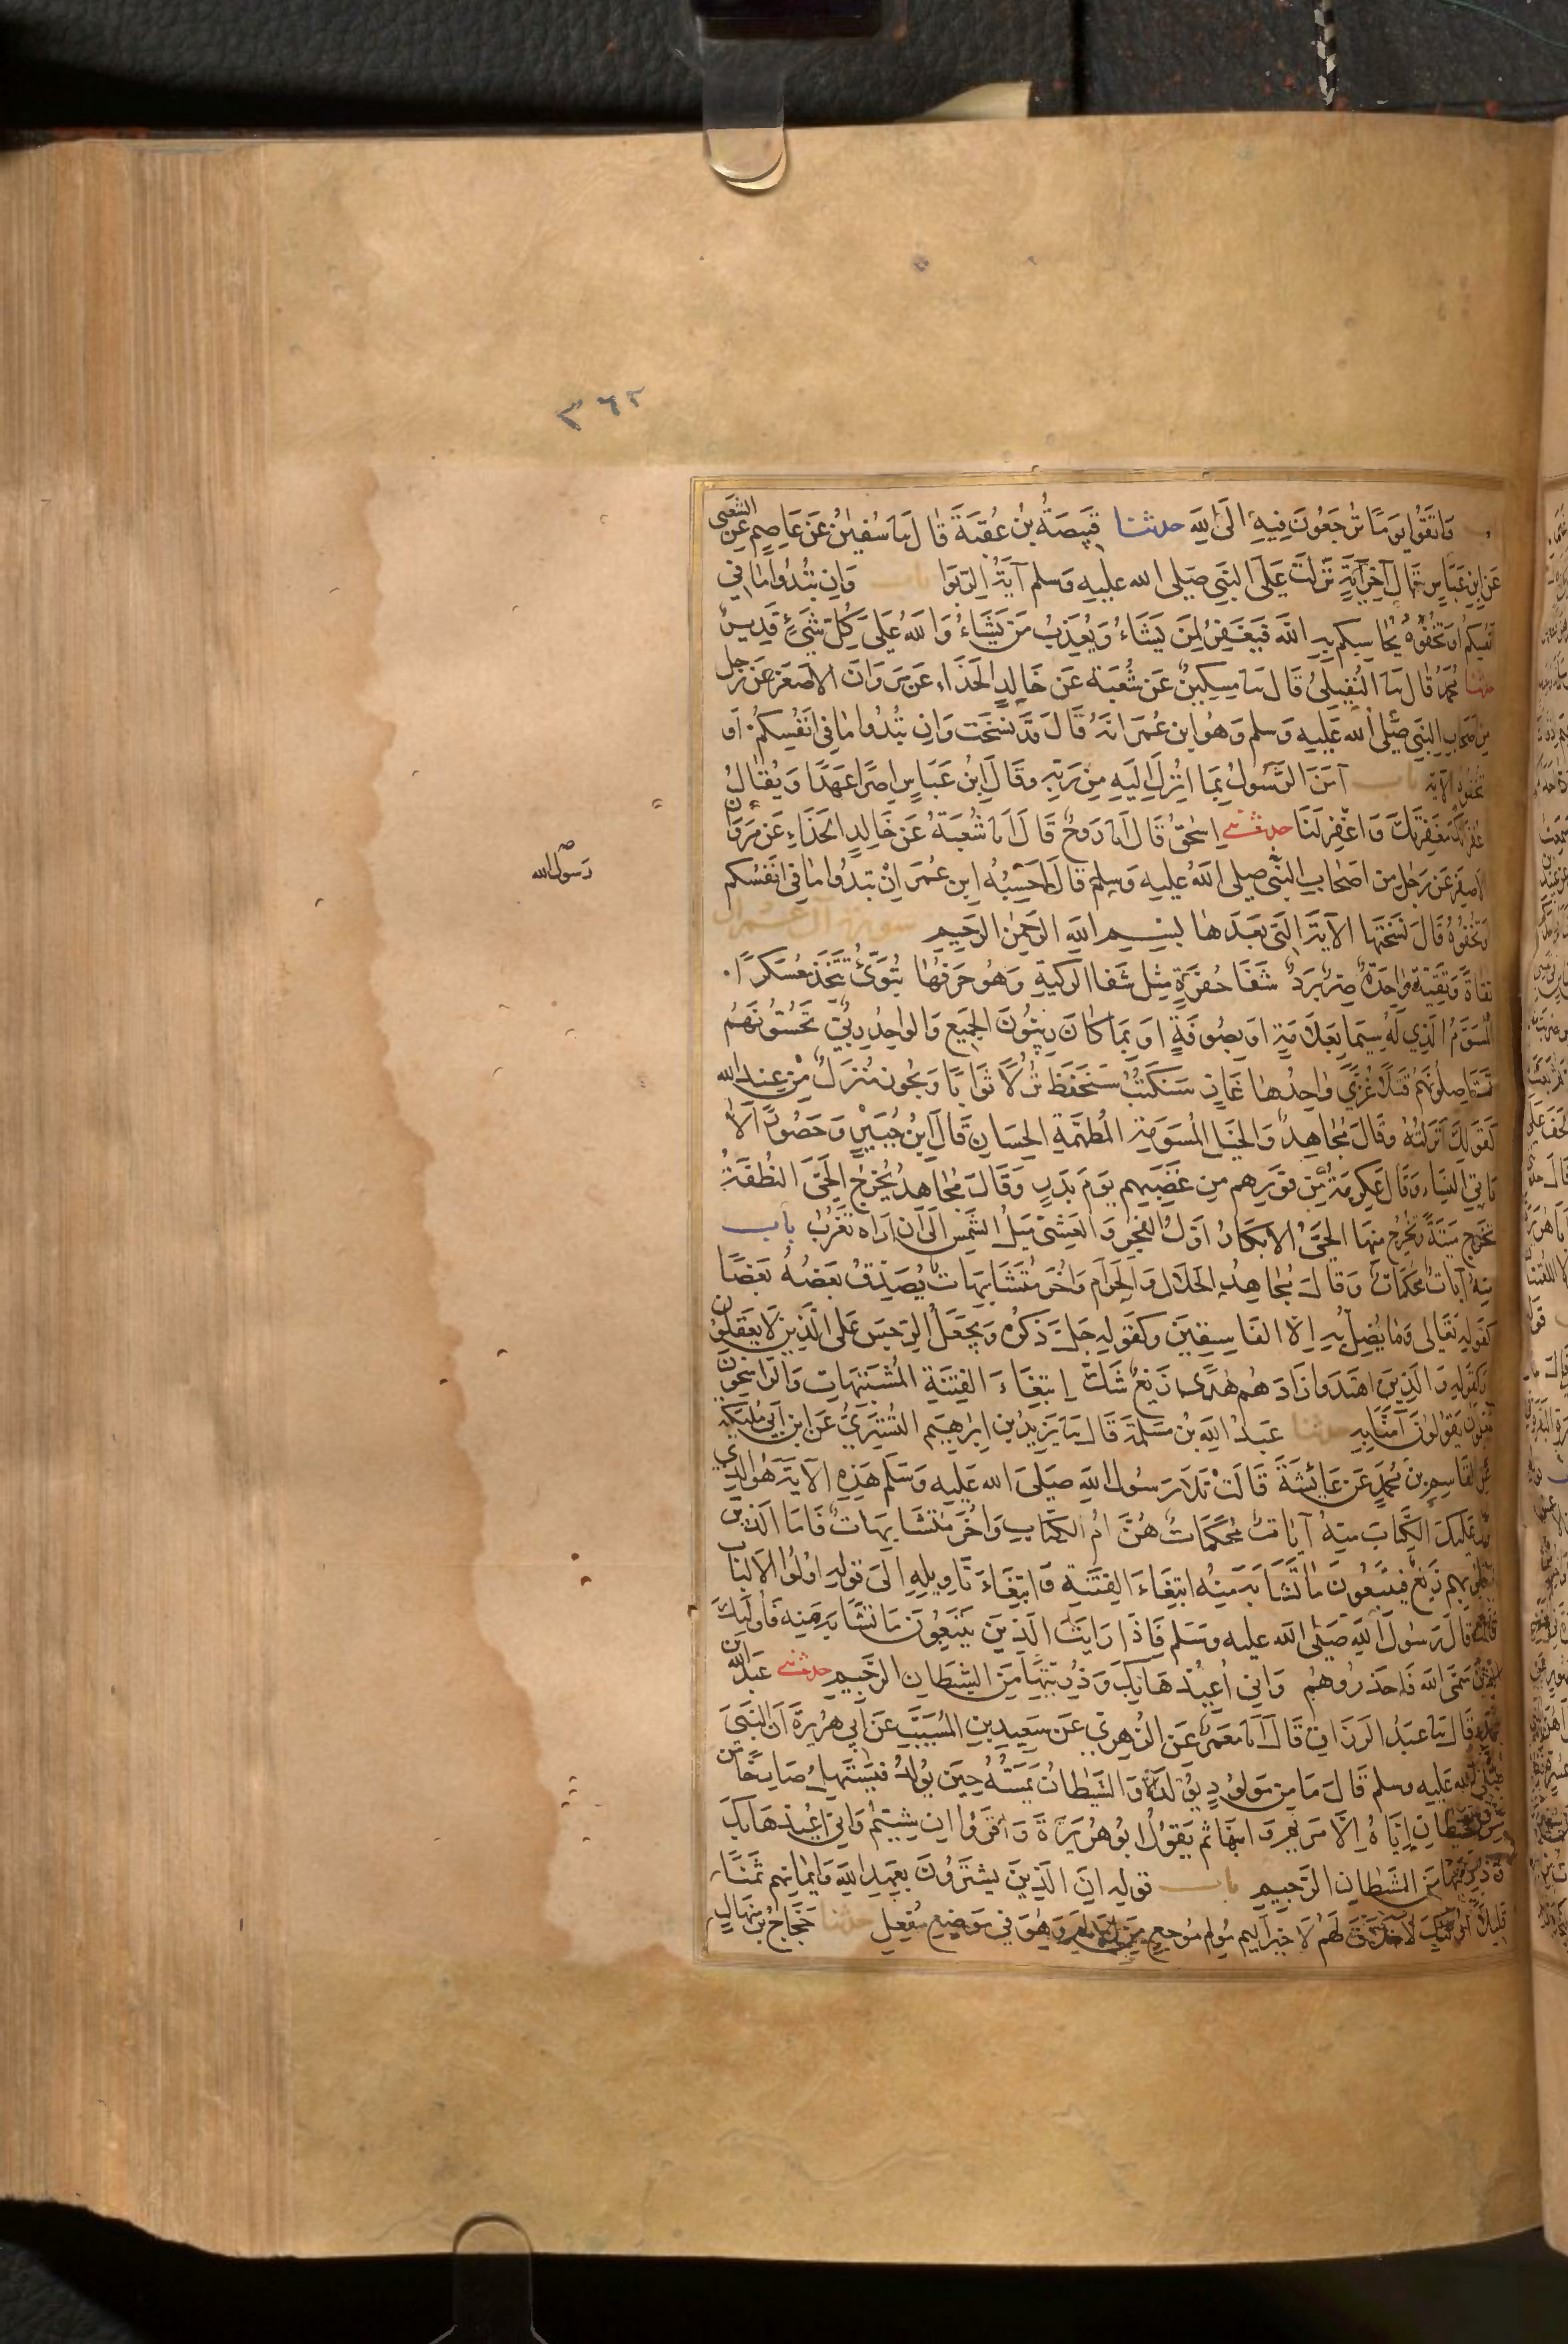 ٣٦٢
باب وَاتَّقُوا يَوْمًا تُرْجَعُونَ فِيهِ إِلَى اللَّهِ حدثنا قَبِيصَةُ بْنُ عُقْبَةَ قَالَ نَا سُفْيٰنُ عَنْ عَاصِمٍ عَنِ الشَّعْبِي
عَنِ ابْنِ عَبَّاسٍ قَالَ آخِرُ آيَةٍ نَزَلَتْ عَلَى النَّبِي صَلى الله عليه وَسلم آيَةُ الرِّبَوا باب وَإِن تُبْدُوا مَا فِي
أَنفُسِكُم أَوْ تُخْفُوهُ يُحَاسِبْكم بِهِ اللَّهُ فَيَغْفِرُ لِمَن يَشَاءُ وَيُعَذِّبُ مَن يَشَاءُ وَاللَّهُ عَلَى كُلِّ شَيْءٍ قَدِيرٌ
حدثنا مُحَمَّدٌ قَالَ نَا النُّفَيْلِيُّ قَالَ نَا مِسكِينٌ عَن شُعْبَة عَن خَالِدٍ الحَذَّاءِ عَن مَروَانَ الأَصْفَرِ عَن رَجُلٍ
مِن أصحَابِ النَّبِي صَلَّى الله عَلَيه وَسلم وَهُو ابن عُمَرَ أنهُ قَالَ قَد نُسِخَت وَإِن تُبْدُوا مَا فِي أَنفُسِكُم أَو
تُخْفُوهُ الآية باب آمَنَ الرَّسُولُ بِمَا أُنْزِلَ إِلَيهِ مِنْ رَبِّهِ وقَالَ ابنُ عَبَّاسٍ إِصْرًا عَهْدًا وَيُقَالُ
غُفْرَانَكَ مَغْفِرَتَكَ وَاغْفِرْ لَنَا حدثني إِسْحٰقُ قَالَ أنا رَوحٌ قَالَ أنا شُعْبَةُ عَن خَالِدٍ الحَذَّاءِ عَن مَروَان
الأصفَر عَن رَجُلٍ مِن أَصْحَابِ النَّبِّي صلى اللَّهُ عليه وَسلم قَالَ أَحْسِبُهُ ابنَ عُمَرَ إِنْ تُبْدُوا مَا فِي أَنفُسكم
رَسُول الله
أَو تُخْفُوهُ قَالَ نَسَخَتها الآيَةُ الَّتِي بَعْدَهَا بِسْمِ اللَّهِ الرَّحْمٰنِ الرَّحِيمِ سورة آل عمران
تُقَاةً وَتَقِيَّة وَاحِدَةٌ صِرٌّ بَرْدٌ شَفَا حُفْرَةٍ مِثلُ شَفَا الرَّكِيَّةِ وَهُوَ حَرْفُهَا تُبَوِّئُ تَتَّخِذُ مُعَسكَرًا
المُسَوَّمُ الَّذِي لَهُ سِيمَا بِعَلَامَةٍ أَو بِصُوفَةٍ أَو بِمَا كَانَ رِبِّيُّونَ الجَمِيع وَالوَاحِدُ رِبِّيٌّ تَحُسُّونَهُم
تَستَأصِلُونَهُمْ قَتلًا غُزًّى وَاحِدُها غَازٍ سَنَكْتُبُ سَنَحفَظُ نُزُلًا ثَوَابًا وَيَجُوز مُنْزَلٌ مِنْ عِندِ الله
كَقَولِكَ أَنزَلتُهُ وقَالَ مُجَاهِدٌ وَالخَيلُ المُسَوَّمَة المُطَهَّمَةُ الحِسَانِ قَالَ ابْنُ جُبَيْرٍ وَحَصُورًا لَا
يَاتِي النِّسَاء وَقَالَ عِكرِمَةُ مِن فَوْرِهِم مِن غَضَبِهِم يَومَ بَدرٍ وَقَالَ مُجَاهِدٌ يُخرِجُ الحَيَّ النُّطفَةُ
تَخرُج مَيتَةً وَيَخرُجُ مِنهَا الحَيُّ الإبكَارُ أَوَّلُ الفَجرِ وَالعَشِيّ مَيلُ الشَّمسِ إِلَى أَن أَرَاه تَغرُبُ بَاب
مِنْهُ آيَاتٌ مُحْكَمَاتٌ وَقَالَ مُجَاهِدٌ الحَلَالُ وَالحَرَام وَأُخَرُ مُتَشَابِهَاتٌ يُصَدِّقُ بَعضُهُ بَعْضًا
كَقَولِهِ تَعَالى وَمَا يُضِلُّ بِهِ إِلَّا الفَاسِقِينَ وَكَقَولِهِ جَلَّ ذِكرُه وَيَجْعَلُ الرِّجسَ عَلى الَّذِينَ لَا يَعقِلُون
وَكَقَولِهِ وَالَّذِينَ اهتَدَوا زَادَهُم هُدًى زَيغٌ شَكٌّ ابتِغَاءَ الفِتْنَةِ المُشْتَبِهَاتِ وَالرَّاسِخُون
يَعلَمُونَ يَقُولُونَ آمَنَّا بِهِ حدثنا عَبدُ اللَّهِ بنُ مَسلَمَة قَالَ نَا يَزِيدُ بن إبرَاهِيم التُّستَرِيُّ عَن ابنِ أَبِي مُلَيكَة
عَنِ القَاسِمِ بنِ مُحَمدٍ عَن عَائشَةَ قَالَتْ تَلَا رَسُولُ اللَّهِ صَلى الله عَليه وَسَلم هَذِهِ الآيَةَ هُوَ الَّذِي
أَنزَلَ عَلَيكَ الكِتَابَ مِنهُ آيَاتٌ مُحْكَمَاتٌ هُنَّ أُمُّ الكِتَابِ وَأُخَرُ مُتَشَابِهَاتٌ فَأَمَّا الَّذِينَ
فِي قُلُوبِهِم زَيغٌ فَيَتَّبِعُونَ مَا تَشَابَهَ مِنهُ ابتِغَاءَ الفِتنَةِ وَابتِغَاءَ تَاوِيلِهِ إِلَى قَولِهِ أُولُوا الأَلبَاب
قَالَت قَالَ رَسُولُ اللَّهِ صَلَّى الله عليه وَسَلم فَإذَا رَايتَ الَّذِينَ يَتَّبِعُونَ مَا تَشَابَهَ مِنه فَأُولَئِكَ
الَّذِينَ سَمَّى اللَّه فَاحذَرُوهُم وَإِنِي أُعِيذُهَا بِكَ وَذُرِّيَّتَهَا مِنَ الشَّيْطَانِ الرَّجِيمِ حدثني عَبدُ الله
بن مُحَمد قَالَ نَا عَبدُ الرَّزَّاق قَالَ أنا مَعمَرٌ عَن الزُّهرِيّ عَن سَعِيدِ بنِ المُسَيَّبِ عَن أَبِي هُرَيرَةَ أَنَّ النَّبِيَّ
صَلَّى الله عَليه وسلم قَالَ مَا مِن مَولُودٍ يُولَدُ إلَّا وَالشَّيْطَانُ يَمَسُّهُ حِينَ يُولَدُ فَيَستَهِلُّ صَارِخًا مِن
مَسِّ الشَّيطَانِ إِيَّاهُ إِلَّا مَريَم وَابنَهَا ثُم يَقُولُ أَبُو هُرَيرَةَ وَاقرَؤُا إِن شِئتُم وَإِنِي أُعِيذُهَا بِكَ
وَذُرِّيَّتَهَا مِنَ الشَّيطَانِ الرَّجِيمِ باب قوله إنَّ الَّذِينَ يَشتَرُونَ بِعَهدِ اللَّهِ وَأَيمَانِهِم ثَمَنًا
قَلِيلًا أُولَئِكَ لَا خَلَاقَ لَهُم لَا خَيرَ أَلِيم مُؤلِم مُوجِعٌ مِنَ الألَم وَهُوَ فِي مَوضِعِ مُفْعِلٍ حدثنا حَجَّاجُ بنُ مِنهَالٍ